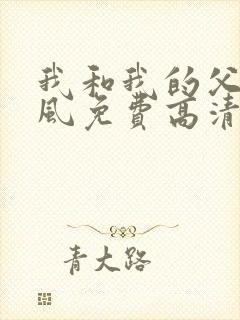 我和我的父
风免费高清
青大路